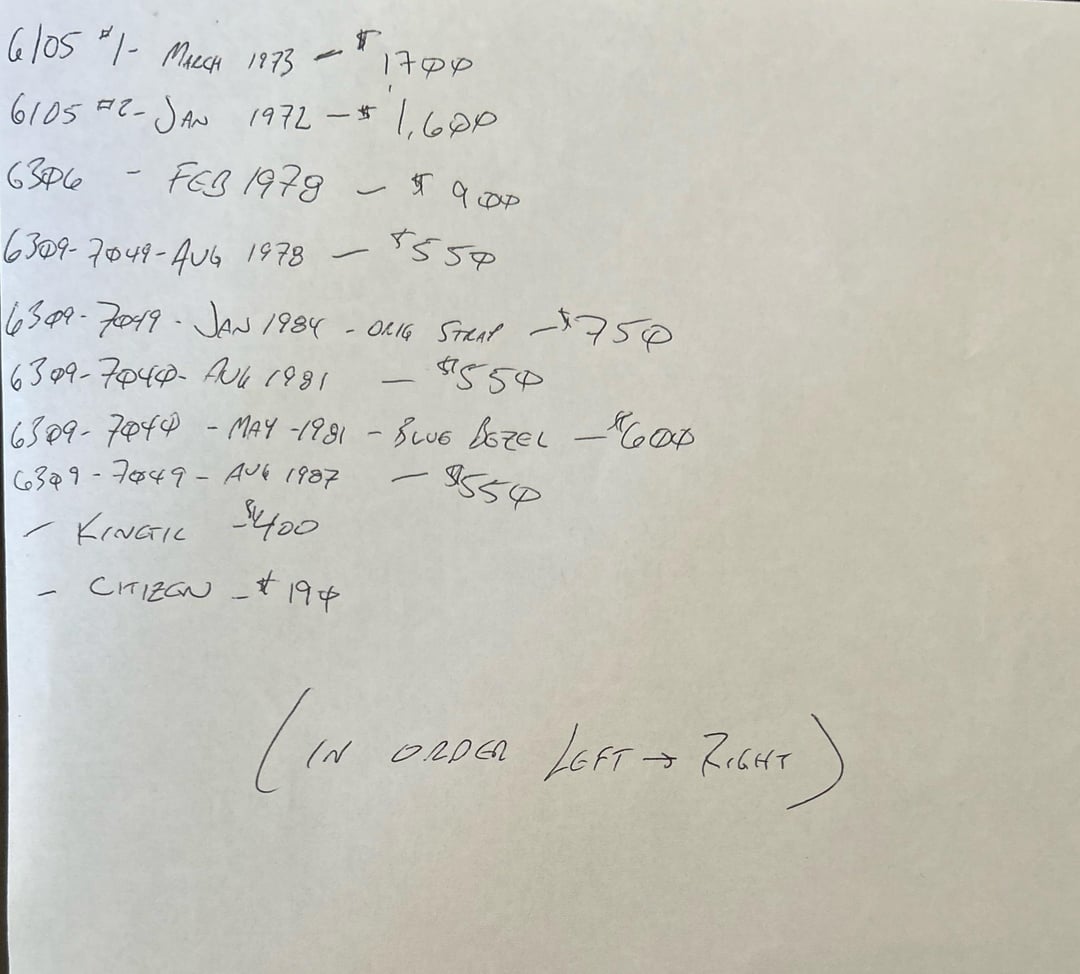 6105 #1- MARCH 1973 - $1700
6105 #2- JAN 1972 - $1,600
6306 - FEB 1978 - $900
6309-7049-AUG 1978 - $550
6309-7049 - JAN 1984 - ORIG STRAP - $750
6309-7040- AUG 1981 - $550
6309-7040 - MAY -1981 - BLUE BEZEL - $600
6309-7049 - AUG 1987 - $550
- KINETIC - $400
- CITIZEN - $190
(IN ORDER LEFT → RIGHT)